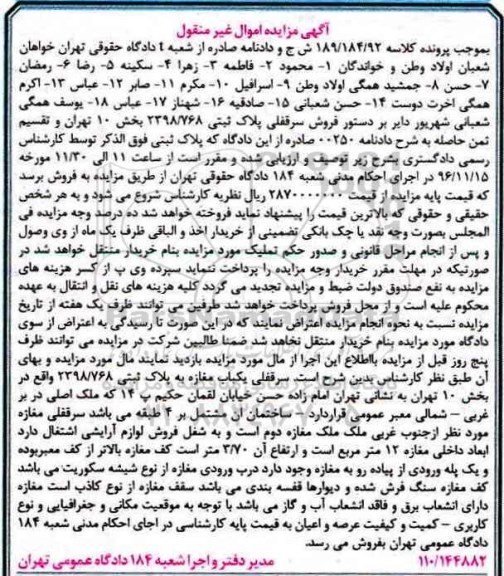 آگهی مزایده اموال غیر منقول
بموجب پرونده کلاسه ۱۸۹/۱۸۴/۹۲ ش ج و دادنامه صادره از شعبه t دادگاه حقوقی تهران خواهان
شعبان اولاد وطن و خواندگان ۱- محمود ۲- فاطمه ۳- زهرا ۴- سکینه ۵- رضا ۶- رمضان
۷- حسن ۸- جمشید همگی اولاد وطن ۹- اسرافیل ۱۰- مکرم ۱۱- صابر ۱۲- عباس ۱۳- اکرم
همگی اخرت دوست ۱۴- حسن شعبانی ۱۵- صادقیه ۱۶- شهناز ۱۷- عباس ۱۸- یوسف همگی
شعبانی شهریور دایر بر دستور فروش سرقفلی پلاک ثبتی ۲۳۹۸/۷۶۸ بخش ۱۰ تهران و تقسیم
ثمن حاصله به شرح دادنامه ۰۰۲۵۰ صادره از این دادگاه که پلاک ثبتی فوق الذکر توسط کارشناس
رسمی دادگستری بشرح زیر توصیف و ارزیابی شده و مقرر است از ساعت ۱۱ الی ۱۱/۳۰ مورخه
۹۶/۱۱/۱۵ در اجرای احکام مدنی شعبه ۱۸۴ دادگاه حقوقی تهران از طریق مزایده به فروش برسد
که قیمت پایه مزایده از قیمت ۲۸۷۰۰۰۰۰۰۰ ریال نظریه کارشناس شروع می شود و به هر شخص
حقیقی و حقوقی که بالاترین قیمت را پیشنهاد نماید فروخته خواهد شد ده درصد وجه مزایده فی
المجلس بصورت وجه نقد یا چک بانکی تضمینی از خریدار اخذ و الباقی ظرف یک ماه از وی وصول
و پس از انجام مراحل قانونی و صدور حکم تملیک مورد مزایده بنام خریدار منتقل خواهد شد در
صورتیکه در مهلت مقرر خریدار وجه مزایده را پرداخت ننماید سپرده وی پ از کسر هزینه های
مزایده به نفع صندوق دولت ضبط و مزایده تجدید می گردد کلیه هزینه های نقل و انتقال به عهده
محکوم علیه است و از محل فروش پرداخت خواهد شد طرفین می توانند ظرف یک هفته از تاریخ
مزایده نسبت به نحوه انجام مزایده اعتراض نمایند که در این صورت تا رسیدگی به اعتراض از سوی
دادگاه مورد مزایده بنام خریدار منتقل نخاهد شد ضمنا طالبین شرکت در مزایده می توانند ظرف
پنج روز قبل از مزایده بااطلاع این اجرا از مال مورد مزایده بازدید نمایند مال مورد مزایده و بهای
آن طبق نظر کارشناس بدین شرح است. سرقفلی یکباب مغازه به پلاک ثبتی ۲۳۹۸/۷۶۸ واقع در
بخش ۱۰ تهران به نشانی تهران امام زاده حسن خیابان لقمان حکیم پ ۱۴ که ملک اصلی در بر
غربی – شمالی معبر عمومی قراردارد ۱- ساختمان آن مشتمل بر ۴ طبقه می باشد سرقفلی مغازه
مورد نظر ازجنوب غربی ملک ملک مغازه دوم است و به شغل فروش لوازم آرایشی اشتغال دارد
ابعاد داخلی مغازه ۱۲ متر مربع است و ارتفاع آن ۳/۷۰ متر است کف مغازه بالاتر از کف معبربوده
و یک پله ورودی از پیاده رو به مغازه وجود دارد درب ورودی مغازه از نوع شیشه سکوریت می باشد
کف مغازه سنگ فرش شده و دیوارها قفسه بندی می باشد سقف مغازه از نوع کاذب است مغازه
دارای انشعاب برق و فاقد انشعاب آب و گاز می باشد با توجه به موقعیت مکانی و جغرافیایی و نوع
کاربری – کمیت و کیفیت عرصه و اعیان به قیمت پایه کارشناسی در اجای احکام مدنی شعبه ۱۸۴
دادگاه عمومی تهران بفروش می رسد.
۱۱۰/۱۴۴۸۸۲ مدیر دفتر و اجرا شعبه ۱۸۴ دادگاه عمومی تهران